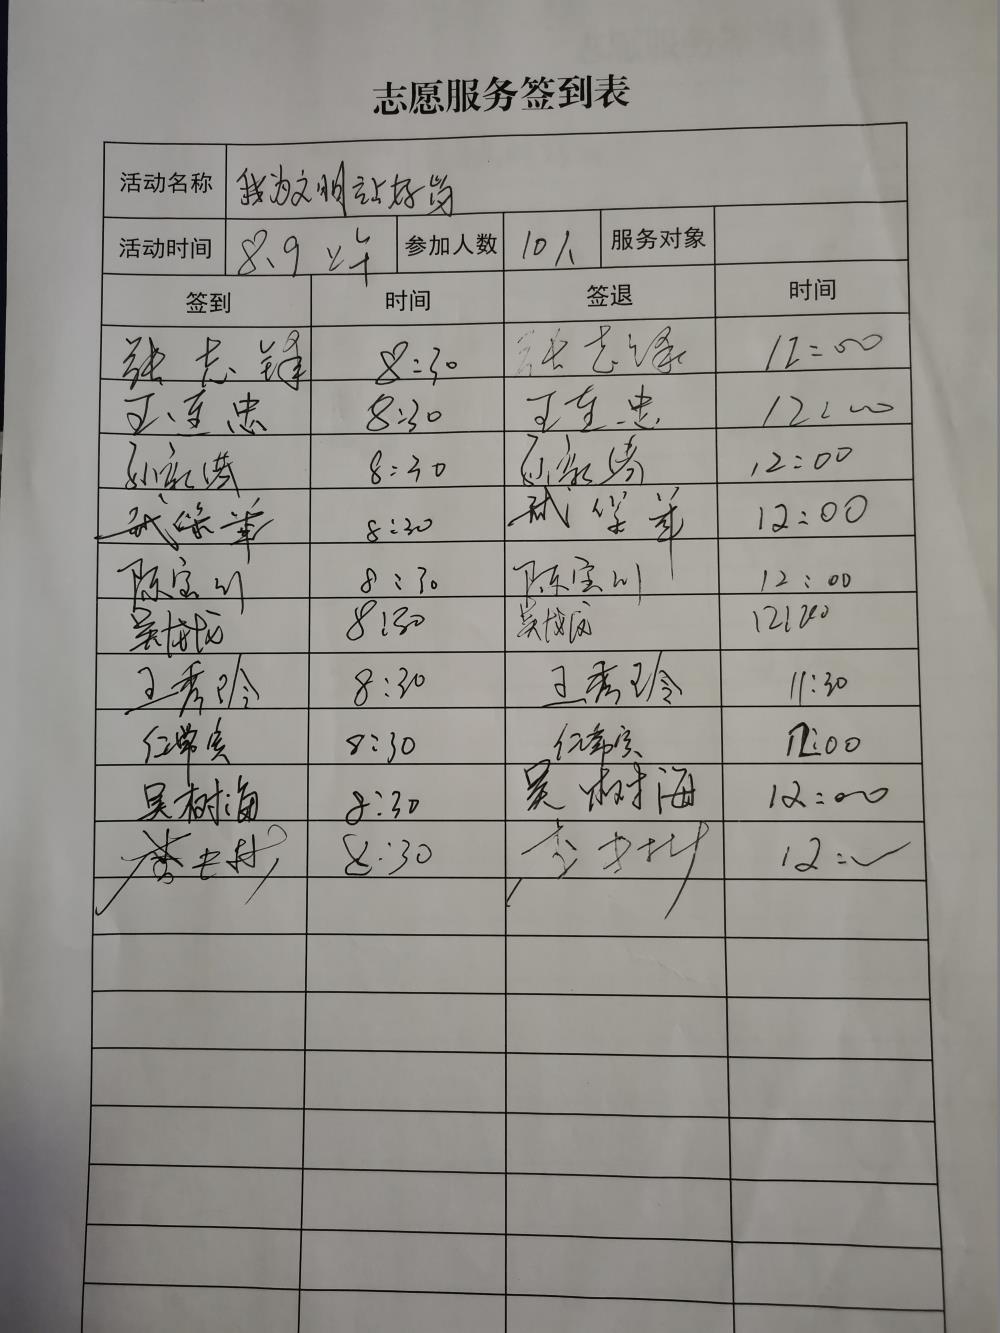 志愿服务签到表
活动名称 我为文明站好岗
活动时间 8.9 上午 参加人数 10人 服务对象
签到 时间 签退 时间
张志锋 8:30 张志锋 12:00
王连忠 8:30 王连忠 12:00
8:30 12:00
保華 8:30 保華 12:00
陈宝川 8:30 陈宝川 12:00
吴 8:30 吴
王秀玲 8:30 王秀玲 11:30
8:30 12:00
吴树海 8:30 吴树海 12:00
8:30 12: